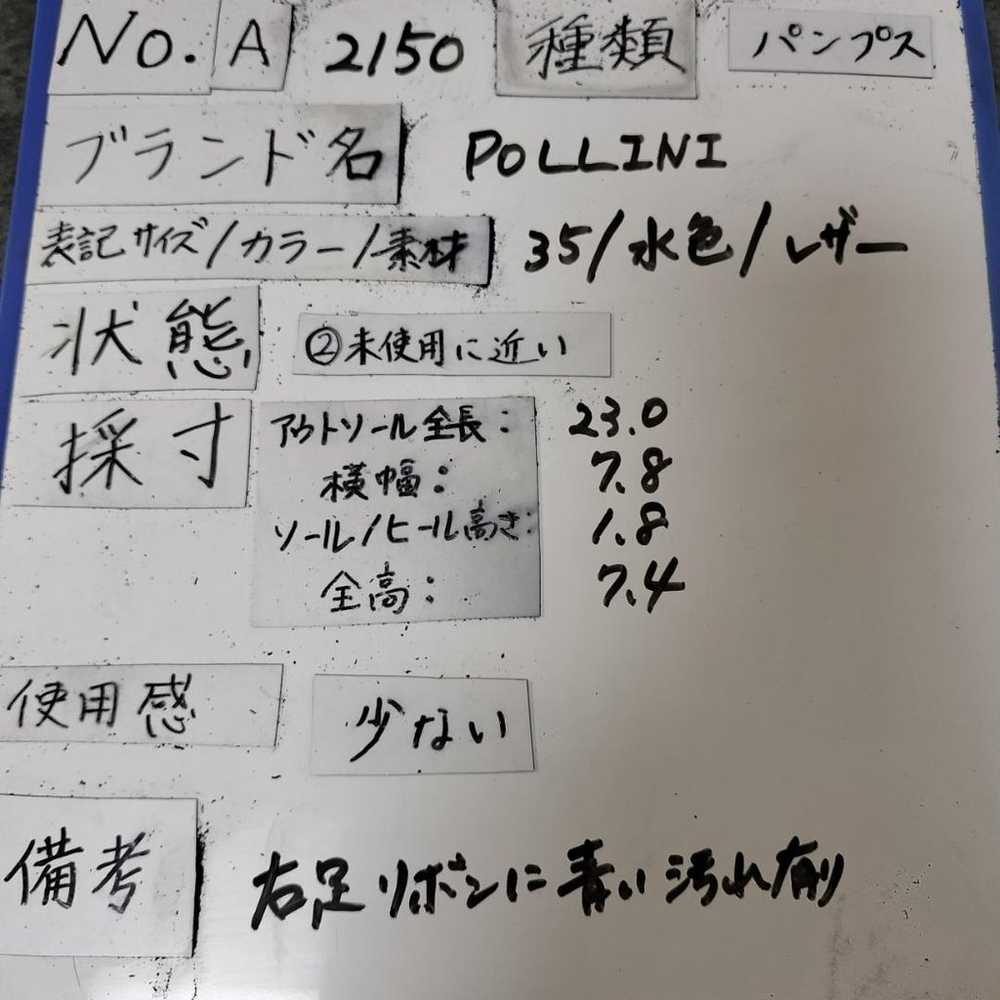 No. A 2150 種類 パンプス
ブランド名 POLLINI
表記サイズ/カラー/素材 35/水色/レザー
状態 ②未使用に近い
採寸 アウトソール全長: 23.0
横幅: 7.8
ソール/ヒール高さ: 1.8
全高: 7.4
使用感 少ない
備考 右足リボンに青い汚れ有り